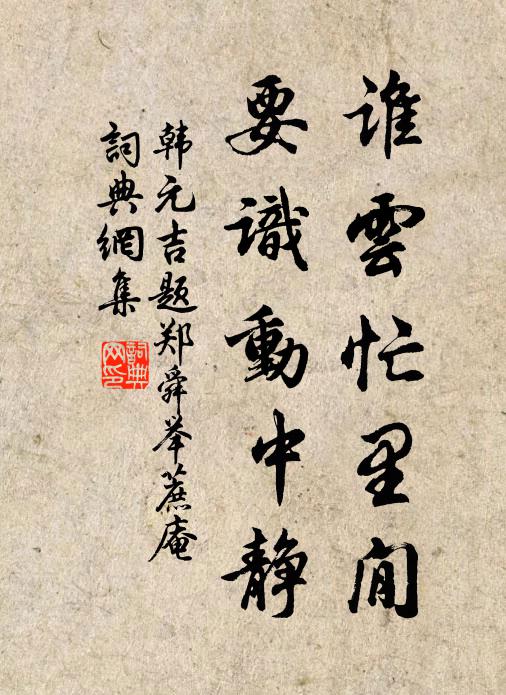 谁雲忙里闲
要識動中静
韩元吉题郑舜举蔗庵
詞典網集
詞典网印